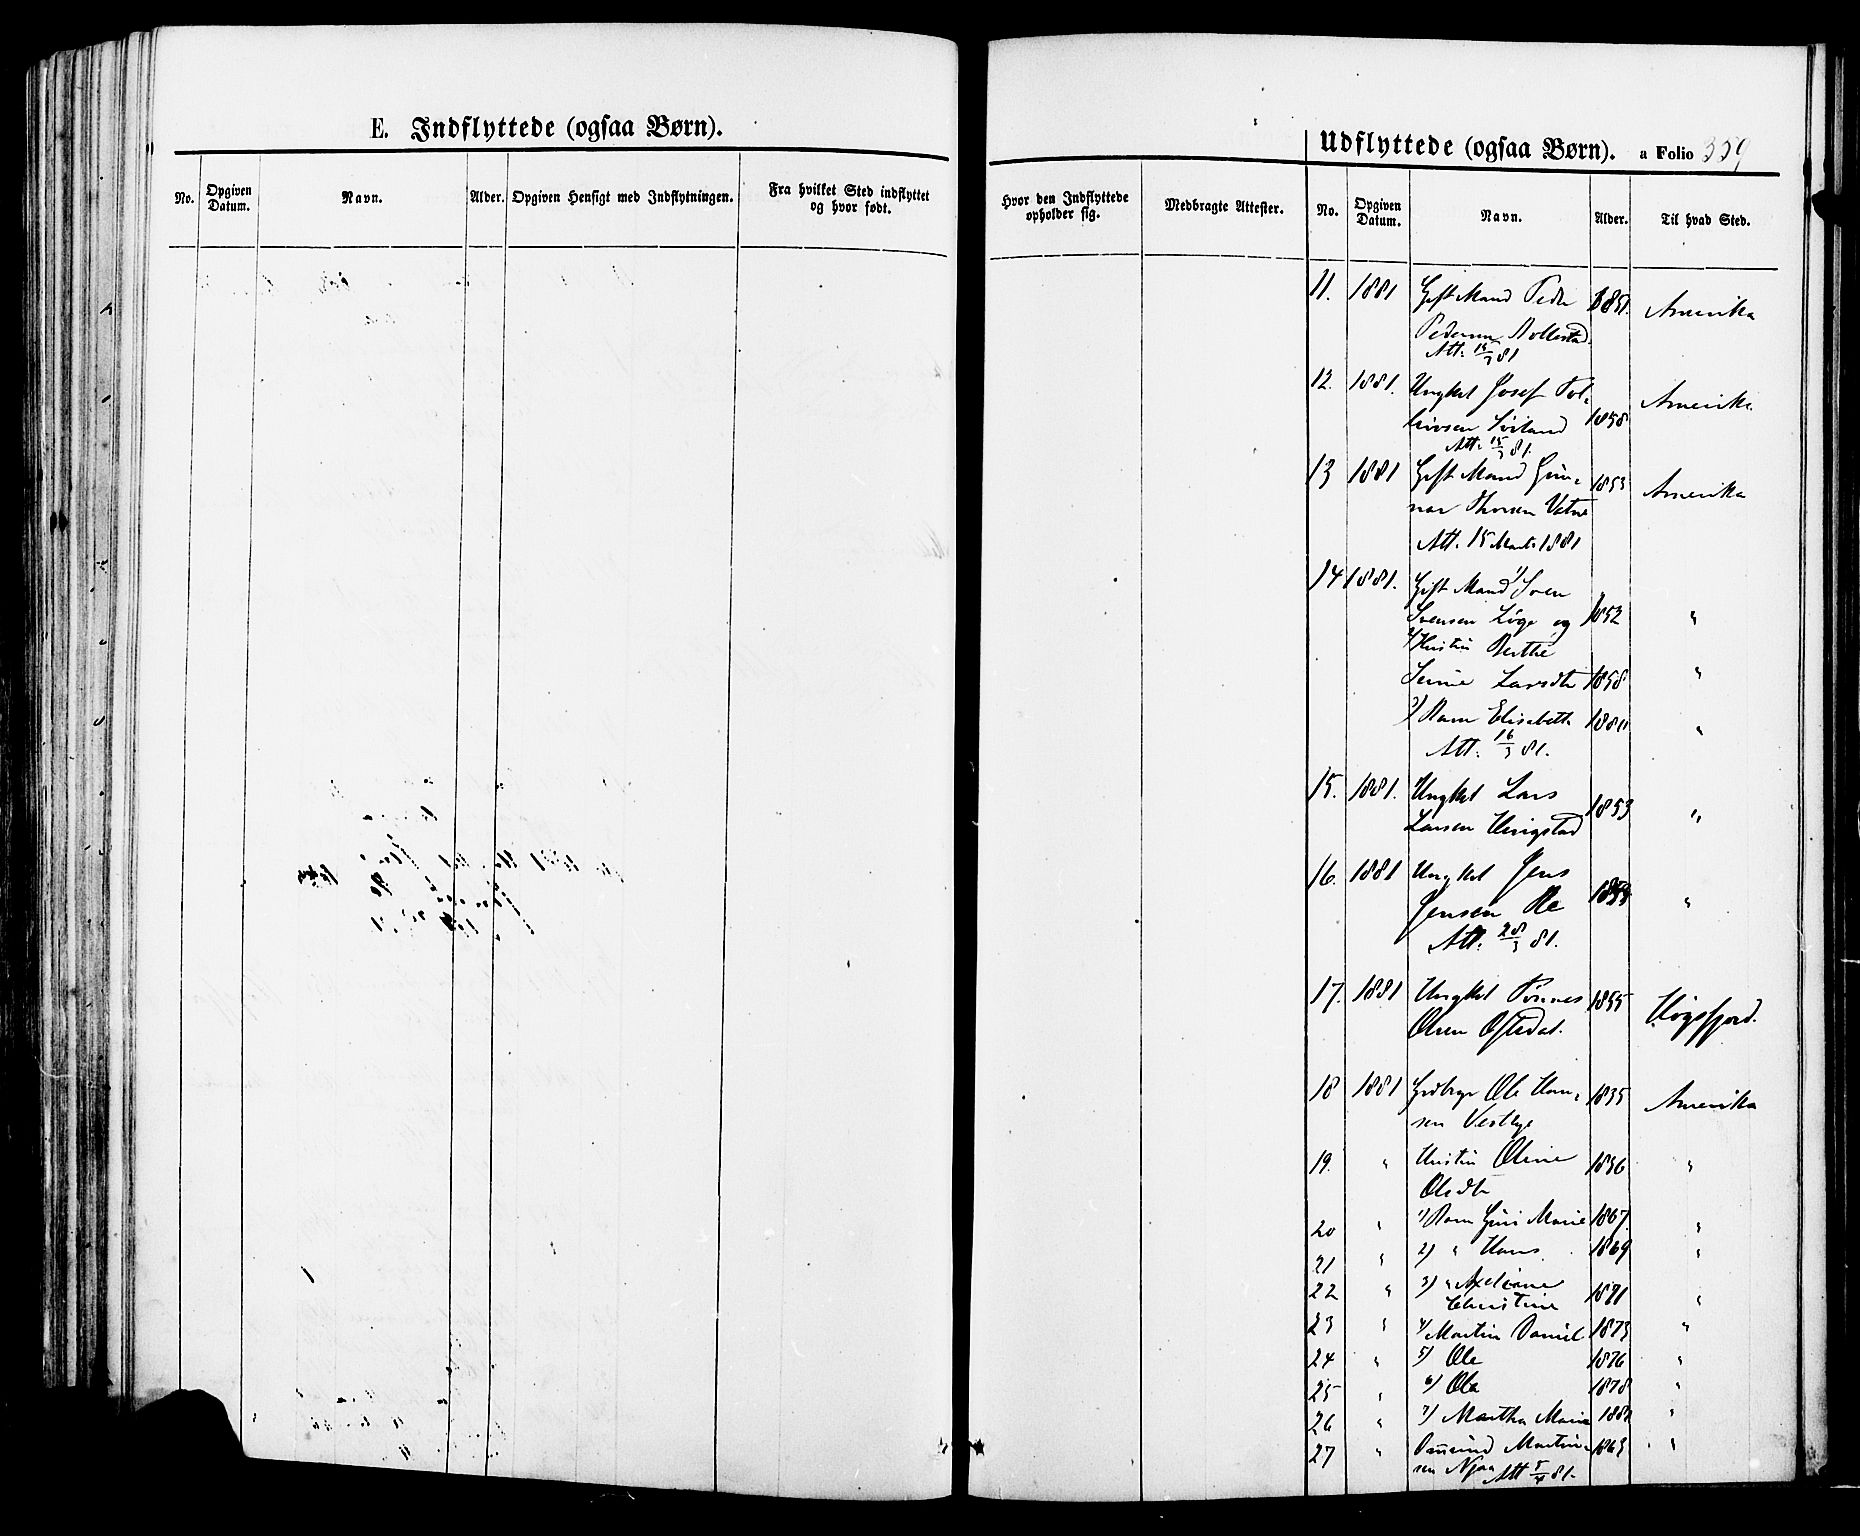 E. Indflyttede (ogsaa Børn).
No.
Opgiven Datum.
Navn.
Alder.
Opgiven Hensigt med Indflytningen.
Fra hvilket Sted indflyttet og hvor født.
Hvor den Indflyttede opholder sig.
Medbragte Attester.
Udflyttede (ogsaa Børn). a Folio 359
No.
Opgiven Datum.
Navn.
Alder.
Til hvad Sted.
11. 1881 Gift Mand Peder 1851. Amerika
Pedersen Bollestad.
Att. 15/3 81
12. 1881. Ungkel Josef Tol- Amerika
leivsen 1858
Att. 15/3 81.
13 1881 Gift Mand Gun- 1853 Amerika
nar Thorsen Vatne
Att. 15 Marts 1881
14 1881. Gift Mand 1) Sven
Svensen Løge og 1852 "
2) Hustru Berthe
Serine Larsdtr 1858 "
3) Barn Elisabeth 1880 "
Att. 16/3 81.
15. 1881. Ungkel Lars 1853 "
Larsen Ungstad
16. 1881 Ungkel Jens "
Jensen Re
Att. 28/3 81.
17. 1881 Ungkel Tønnes 1855 Høgsfjord.
Olsen Oftedal.
18 1881 Ole Han- 1835 Amerika
sen Vestbye
19. " Hustru Oline 1836 "
Olsdtr
20 " 1) Barn Guri Marie 1867. "
21 " 2) " Hans 1869 "
22 " 3) " Axeliane 1871 "
Christine
23 " 4) Martin Daniel 1873 "
24 " 5) Ole 1876 "
25 " 6) Ola 1878 "
26 " 7) Martha Marie 1880 "
27 " Martin- 1863 "
sen Njaa Att 5/4 81.